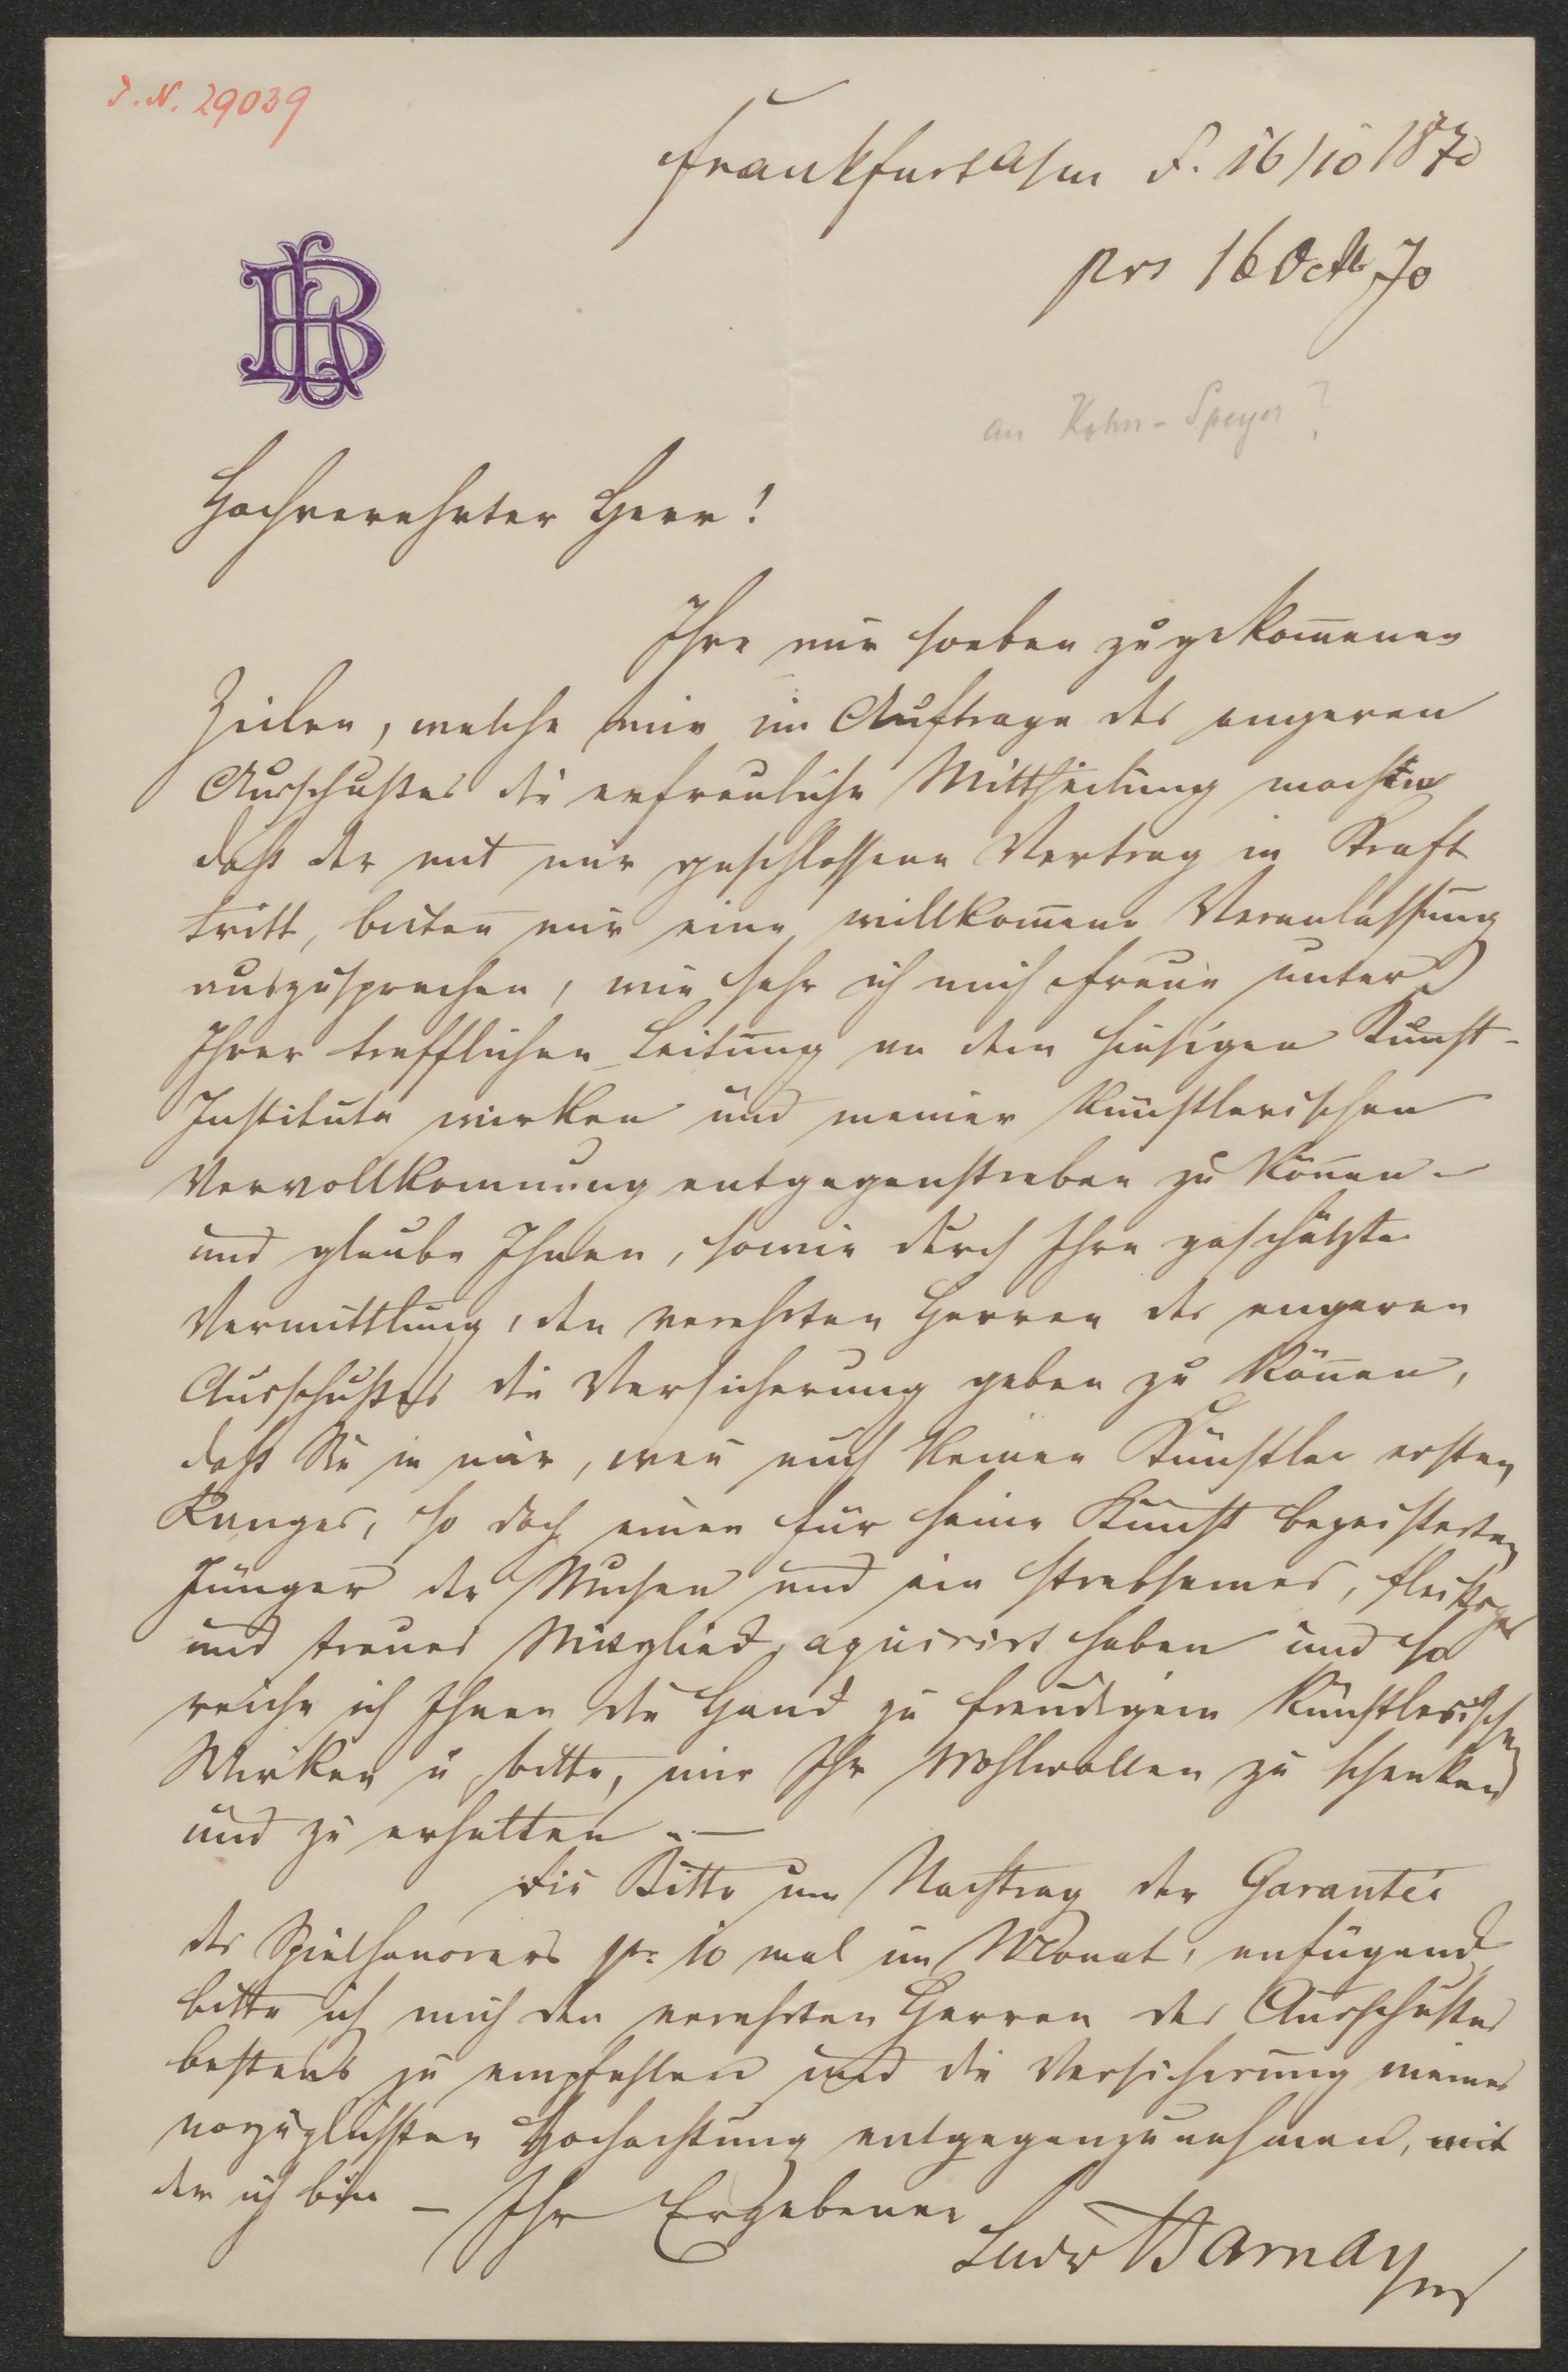 J. N. 29039
Frankfurt a/m d. 16/10 1870
prs 16 Octb 70
LB
an Kohn-Speyer?
Hochverehrter Herr!
Ihre mir soeben zugekom̄enen
Zeilen, welche mir im Auftrage des engeren
Ausschußes die erfreuliche Mittheilung machten
daß der mit mir geschlossene Vertrag in Kraft
tritt, bieten mir eine willkom̄ene Veranlassung
auszusprechen, wie sehr ich mich freue unter
Ihrer trefflichen Leitung an dem hiesigen Kunst-
Institute wirken und meiner künstlerischen
Vervollkommnung entgegenstreben zu kön̄en –
und glaube Ihnen, sowie durch Ihre geschätzte
Vermittlung, den verehrten Herren des engeren
Ausschußes die Versicherung geben zu kön̄en,
daß Sie in mir, wen̄ auch keinen Künstler ersten
Ranges, so doch einen für seine Kunst begeisterten
Jünger der Musen und ein strebsames, fleißiges
und treues Mitglied aquirirt haben und so
reiche ich Ihnen die Hand zu freudigem künstlerischen
Wirken u bitte, mir Ihr Wohlwollen zu schenken
und zu erhalten. –
Die Bitte um Nachtrag der Garantie
des Spielhonorars pr. 10 mal im Monat, anfügend
bitte ich mich den verehrten Herren des Ausschußes
bestens zu empfehlen und die Versicherung meiner
vorzüglichsten Hochachtung entgegenzunehmen, mit
der ich bin – Ihr Ergebener
Ludw Barnay